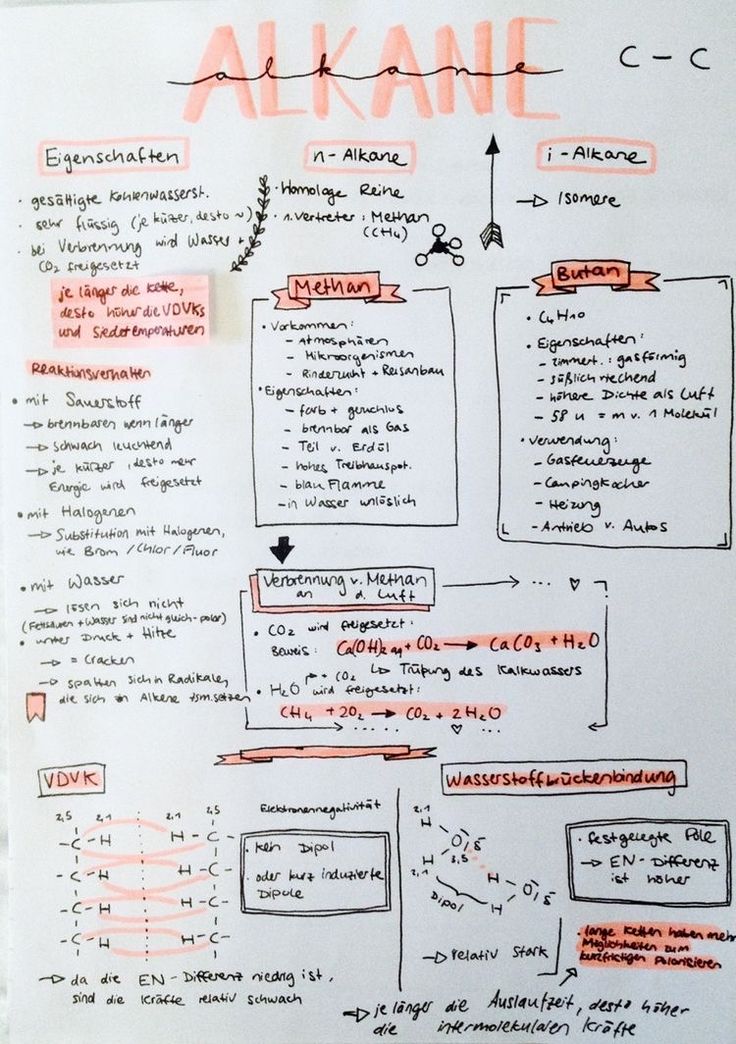 ALKANE
alkane
C - C
Eigenschaften
· gesättigte Kohlenwasserst.
· sehr flüssig (je kürzer, desto ~)
· bei Verbrennung wird Wasser +
CO2 freigesetzt
je länger die Kette,
desto höher die VDVKs
und Siedetemperaturen
n-Alkane
· Homologe Reihe
· 1. Vertreter: Methan
(CH4)
i-Alkane
→ Isomere
Reaktionsverhalten
• mit Sauerstoff
→ brennbaren wenn länger
→ schwach leuchtend
→ je kürzer, desto mehr
Energie wird freigesetzt
• mit Halogenen
→ Substitution mit Halogenen,
wie Brom / Chlor / Fluor
• mit Wasser
→ lösen sich nicht
(Fettsäuren + Wasser sind nicht gleich-polar)
• unter Druck + Hitze
→ = Cracken
→ spalten sich in Radikale,
die sich in Alkene zsm.setzen
Methan
• Vorkommen:
- Atmosphären
- Mikroorgenismen
- Rinderzucht + Reisanbau
• Eigenschaften:
- farb + geruchlos
- brennbar als Gas
- Teil v. Erdöl
- hohes Treibhauspot.
- blau Flamme
- in Wasser unlöslich
Butan
• C4H10
• Eigenschaften:
- zimmert.: gasförmig
- süßlich riechend
- höhere Dichte als Luft
- 58 u = m v. 1 Molekül
• Verwendung:
- Gasfeuerzeuge
- Campingkocher
- Heizung
- Antrieb v. Autos
Verbrennung v. Methan
an d. Luft
...
• CO2 wird freigesetzt:
Beweis: Ca(OH)2 aq + CO2 → CaCO3 + H2O
+ CO2 ↳ Trübung des Kalkwassers
• H2O wird freigesetzt:
CH4 + 2O2 → CO2 + 2H2O
VDVK
2,5 2,1 2,1 2,5
-C-H H-C-
-C-H H-C-
-C-H H-C-
-C-H H-C-
Elektronennegativität
· kein Dipol
· oder kurz induzierte
Dipole
→ da die EN-Differenz niedrig ist,
sind die Kräfte relativ schwach
Wasserstoffbrückenbindung
2,1
H
O δ-
H 3,5
2,1
H
O δ-
H
Dipol
→ relativ stark
· festgelegte Pole
→ EN-Differenz
ist höher
· lange Ketten haben mehr
Möglichkeiten zum
kurzfristigen Polarisieren
→ je länger die Auslaufzeit, desto höher
die intermolekularen Kräfte